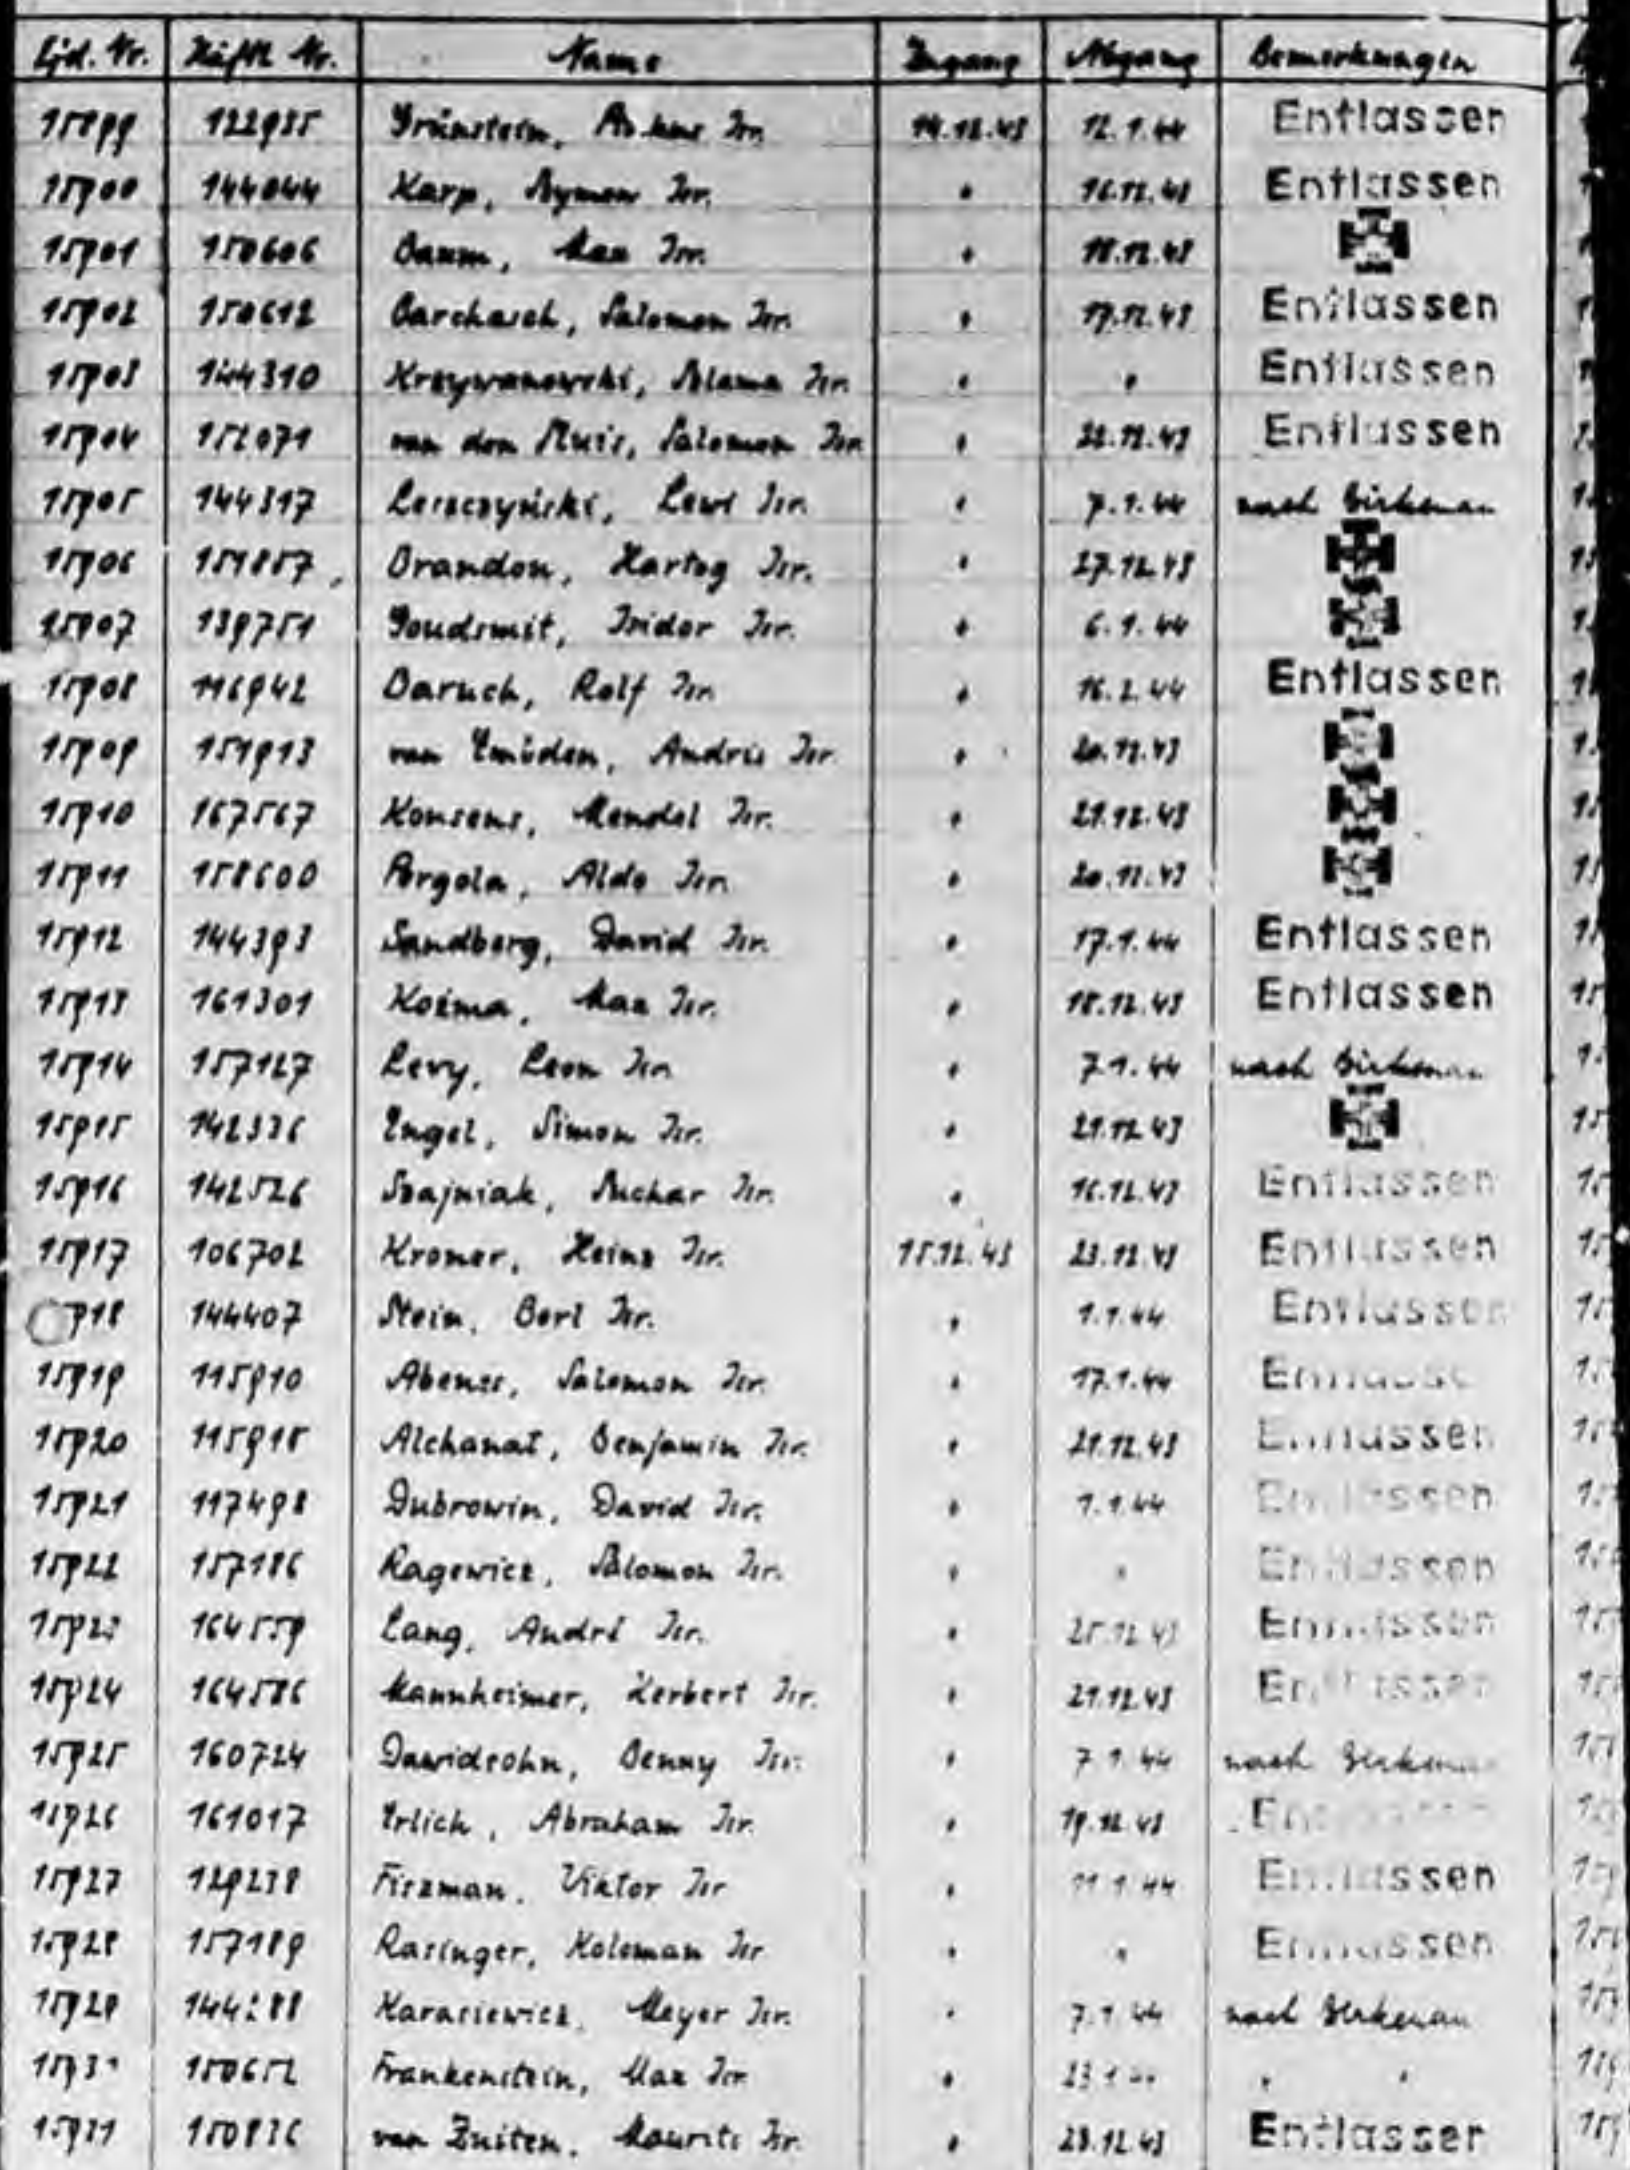 Lfd. Nr. Häftl. Nr. Name Zugang Abgang Bemerkungen
15899 122985 Grünstein, Isr. 14.12.43 12.1.44 Entlassen
15900 144044 Karp, Szymon Isr. " 16.12.43 Entlassen
15901 150606 Baum, Max Isr. " 18.12.43
15902 150612 Barchasch, Salomon Isr. " 17.12.43 Entlassen
15903 144310 Krzywanowski, Szlama Isr. " " Entlassen
15904 152071 van den Isr. Salomon " 22.12.43 Entlassen
15905 144317 Leszczyński, Lewi Isr. " 7.1.44 nach Birkenau
15906 151857 Brandon, Hartog Isr. " 27.12.43
15907 139751 Goudsmit, Isidor Isr. " 6.1.44
15908 116942 Baruch, Rolf Isr. " 16.2.44 Entlassen
15909 151913 van Emüden, Andries Isr. " 20.12.43
15910 167567 Konsens, Mendel Isr. " 21.12.43
15911 158600 Pergola, Aldo Isr. " 20.12.43
15912 144393 Sandberg, David Isr. " 17.1.44 Entlassen
15913 161301 Koźma, Max Isr. " 18.12.43 Entlassen
15914 157127 Levy, Leon Isr. " 7.1.44 nach Birkenau
15915 142336 Engel, Simon Isr. " 21.12.43
15916 142526 Szajniak, Suchar Isr. " 16.12.43 Entlassen
15917 106702 Kromer, Heinz Isr. 15.12.43 23.12.43 Entlassen
918 144407 Stein, Berl Isr. " 1.1.44 Entlassen
15919 115910 Abenes, Salomon Isr. " 17.1.44 Entlassen
15920 115915 Alchanat, Benjamin Isr. " 21.12.43 Entlassen
15921 117498 Dubrowin, David Isr. " 1.1.44 Entlassen
15922 157186 Ragewicz, Salomon Isr. " " Entlassen
15923 164559 Lang, André Isr. " 25.12.43 Entlassen
15924 164586 Mannheimer, Herbert Isr. " 21.12.43 Entlassen
15925 160724 Dawidsohn, Benny Isr. " 7.1.44 nach Birkenau
15926 161017 Erlich, Abraham Isr. " 19.12.43
15927 129238 Fiszman, Viktor Isr " 11.1.44 Entlassen
15928 157189 Rasinger, Koloman Isr " " Entlassen
15929 Karasiewicz, Meyer Isr. " 7.1.44 nach Birkenau
150652 Frankenstein, Max Isr " " "
15931 150836 van Zuiten, Maurits Isr. " 28.12.43 Entlassen